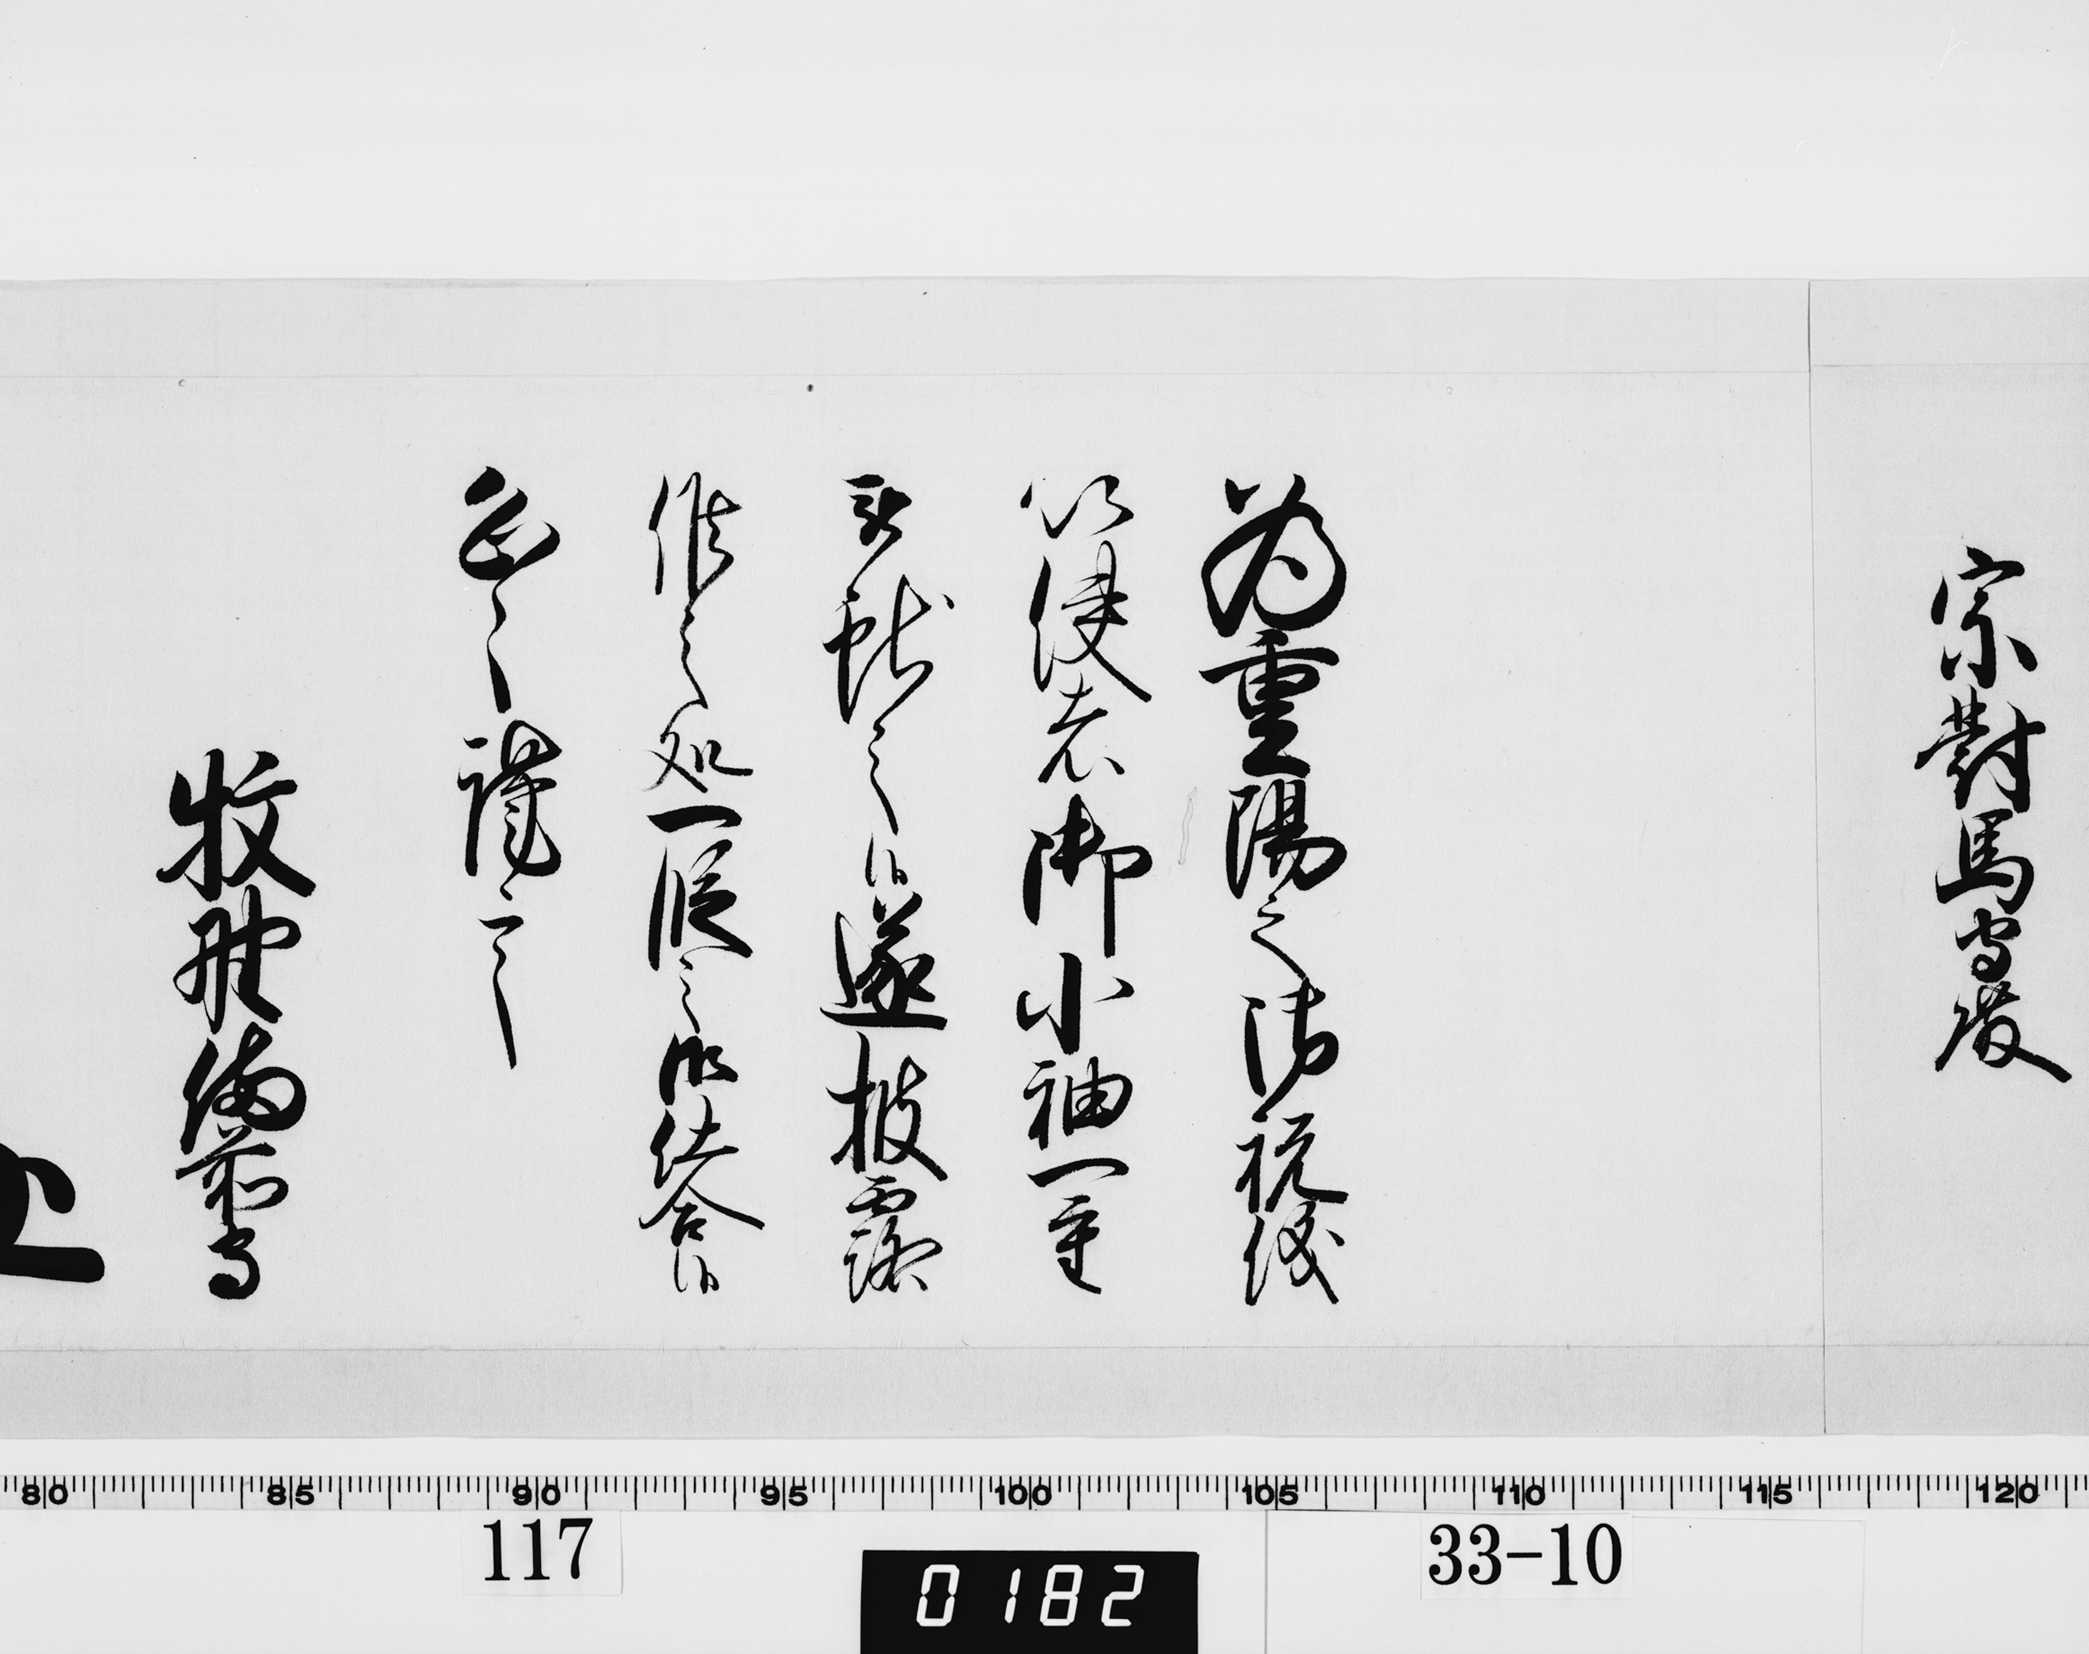 宗對馬守殿
為重陽之御祝儀
以使者御小袖一重
被献之候遂披露
候之処一段之御仕合候
恐々謹言
牧野備前守
80 85 90 95 100 105 110 115 120
117
33-10
0182